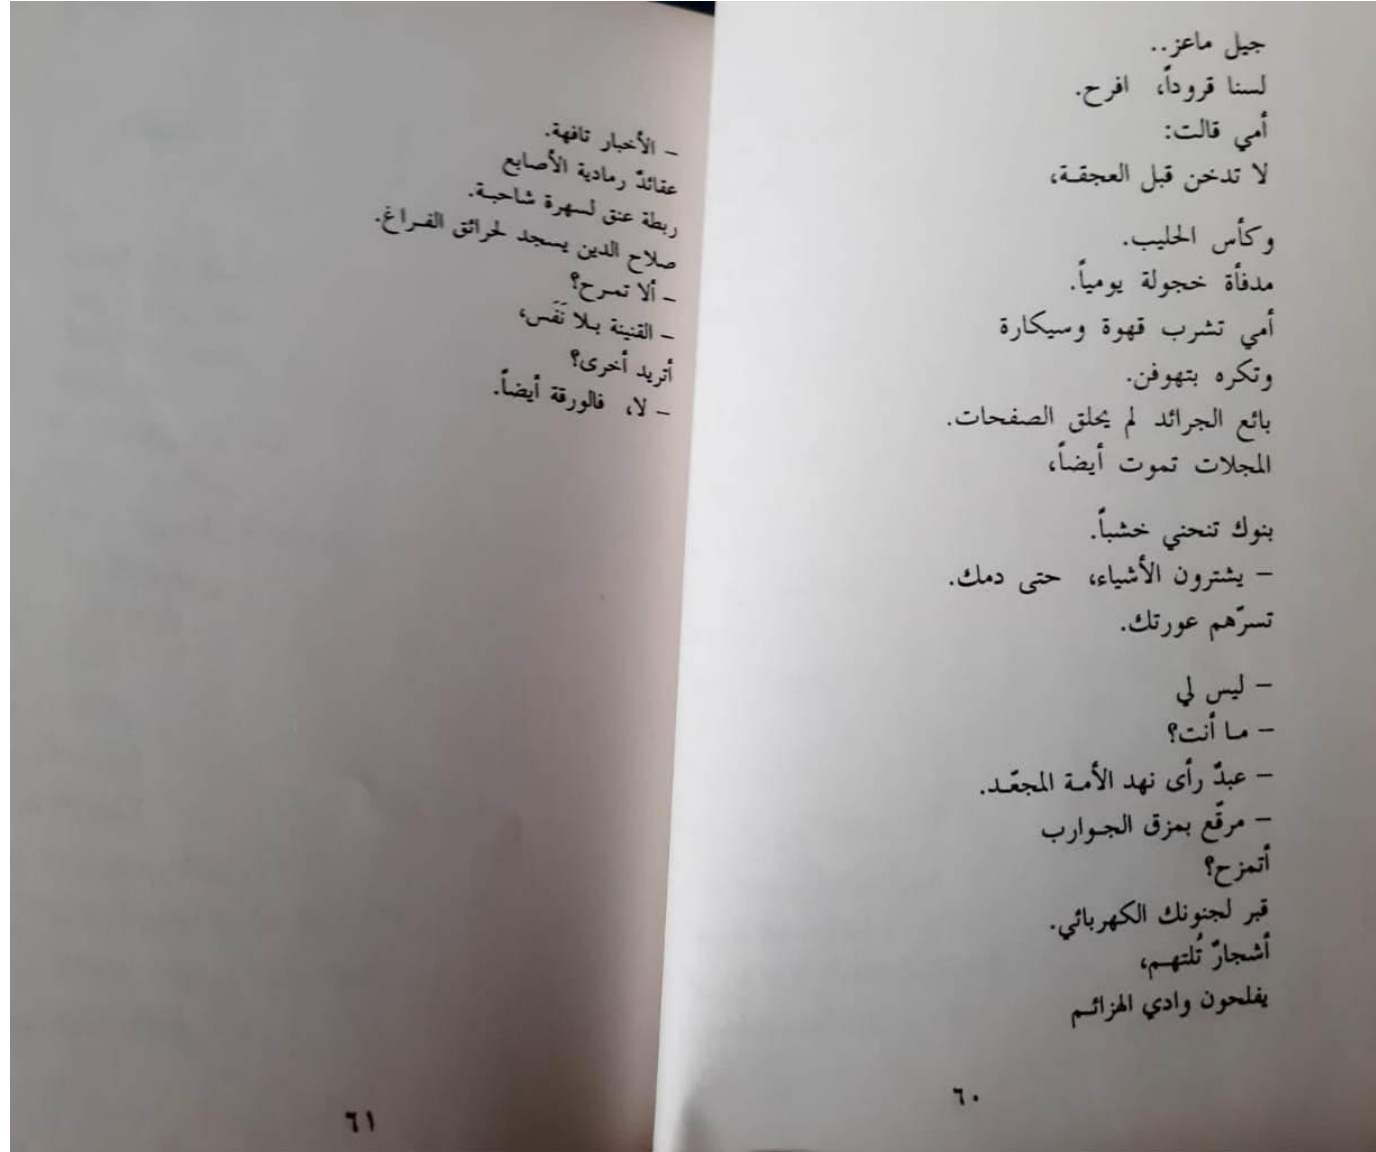 جيل ماعز..
لسنا قروداً، افرح.
أمي قالت:
لا تدخن قبل العجقـة،
وكأس الحليب.
مدفأة خجولة يومياً.
أمي تشرب قهوة وسيكارة
وتكره بتهوفن.
بائع الجرائد لم يحلق الصفحات.
المجلات تموت أيضاً،
بنوك تنحني خشباً.
– يشترون الأشياء، حتى دمك.
تسرّهم عورتك.
– ليس لي
– مـا أنت؟
– عبدٌ رأى نهد الأمـة المجعّـد.
– مرقّع بمزق الجـوارب
أتمزح؟
قبر لجنونك الكهربائي.
أشجارٌ تُلتهـم،
يفلحون وادي الهزائـم
٦٠
– الأخبار تافهة.
عقائدٌ رمادية الأصابع
ربطة عنق لسهرة شاحبـة.
صلاح الدين يسجد لحرائق الفـراغ.
– ألا تمـرح؟
– القنينة بـلا نَفَس،
أتريد أخرى؟
– لا، فالورقة أيضاً.
٦١